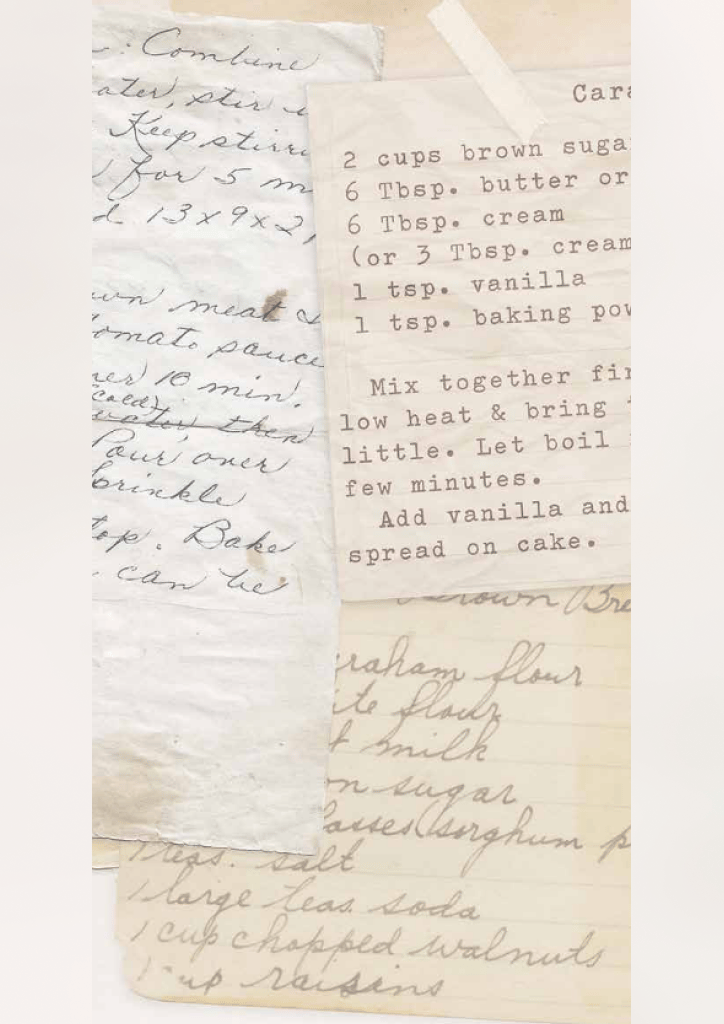 : Combine
ater, stir i
Keep stirri
for 5 m
d 13 x 9 x 2,
wn meat &
tomato sauce
er 10 min.
(cold)
water, then
Pour over
Sprinkle
top. Bake
can be
Cara
2 cups brown suga
6 Tbsp. butter or
6 Tbsp. cream
(or 3 Tbsp. cream
1 tsp. vanilla
1 tsp. baking pow
Mix together fir
low heat & bring t
little. Let boil
few minutes.
Add vanilla and
spread on cake.
Brown Bre
graham flour
ite flour
milk
on sugar
lasses (sorghum p
1 teas. salt
1 large teas. soda
1 cup chopped walnuts
1 cup raisins